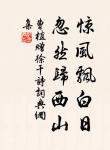 驚風飄白日
忽然歸西山
曹植贈徐干詩詞典網
集